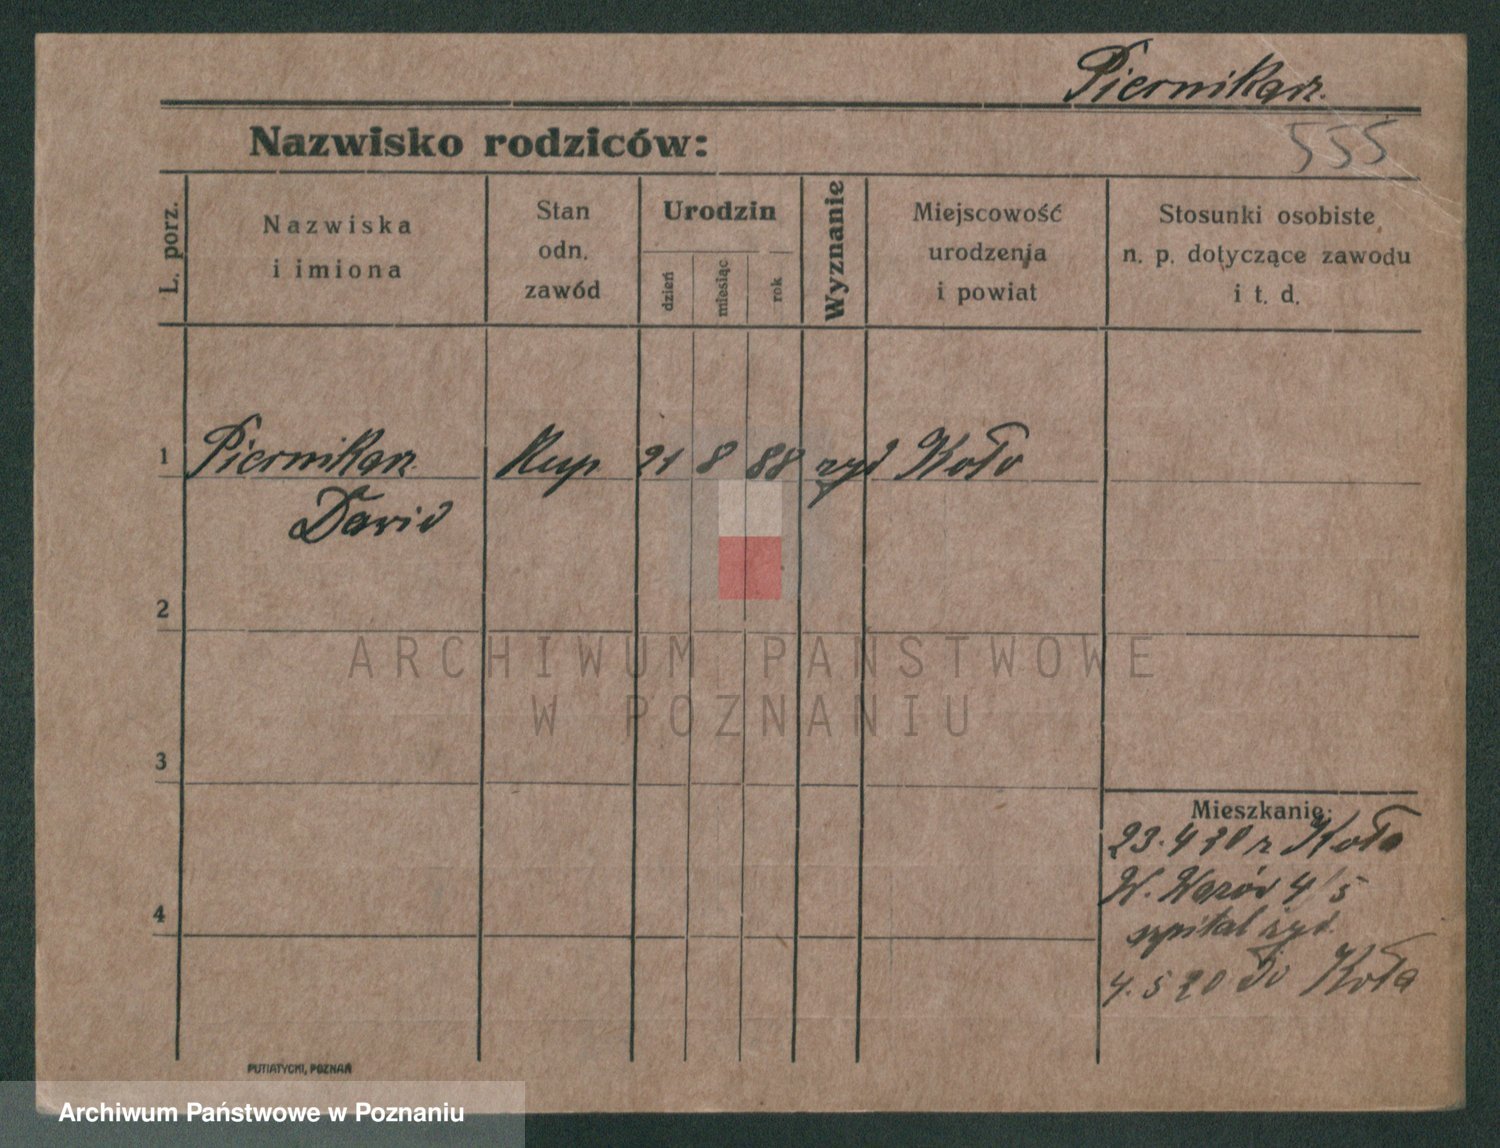 Piernikarz.
555
Nazwisko rodziców:
L. porz.
Nazwiska
i imiona
Stan
odn.
zawód
Urodzin
dzień
miesiąc
rok
Wyznanie
Miejscowość
urodzenia
i powiat
Stosunki osobiste
n. p. dotyczące zawodu
i t. d.
1
Piernikarz.
Dawid
Kup
21
8
88
żyd
Koło
2
3
4
Mieszkanie:
23.4 20 z Koła
W. 4/5
szpital żyd.
4.5 20 do Koła
PUTIATYCKI, POZNAŃ
ARCHIWUM PAŃSTWOWE
W POZNANIU
Archiwum Państwowe w Poznaniu